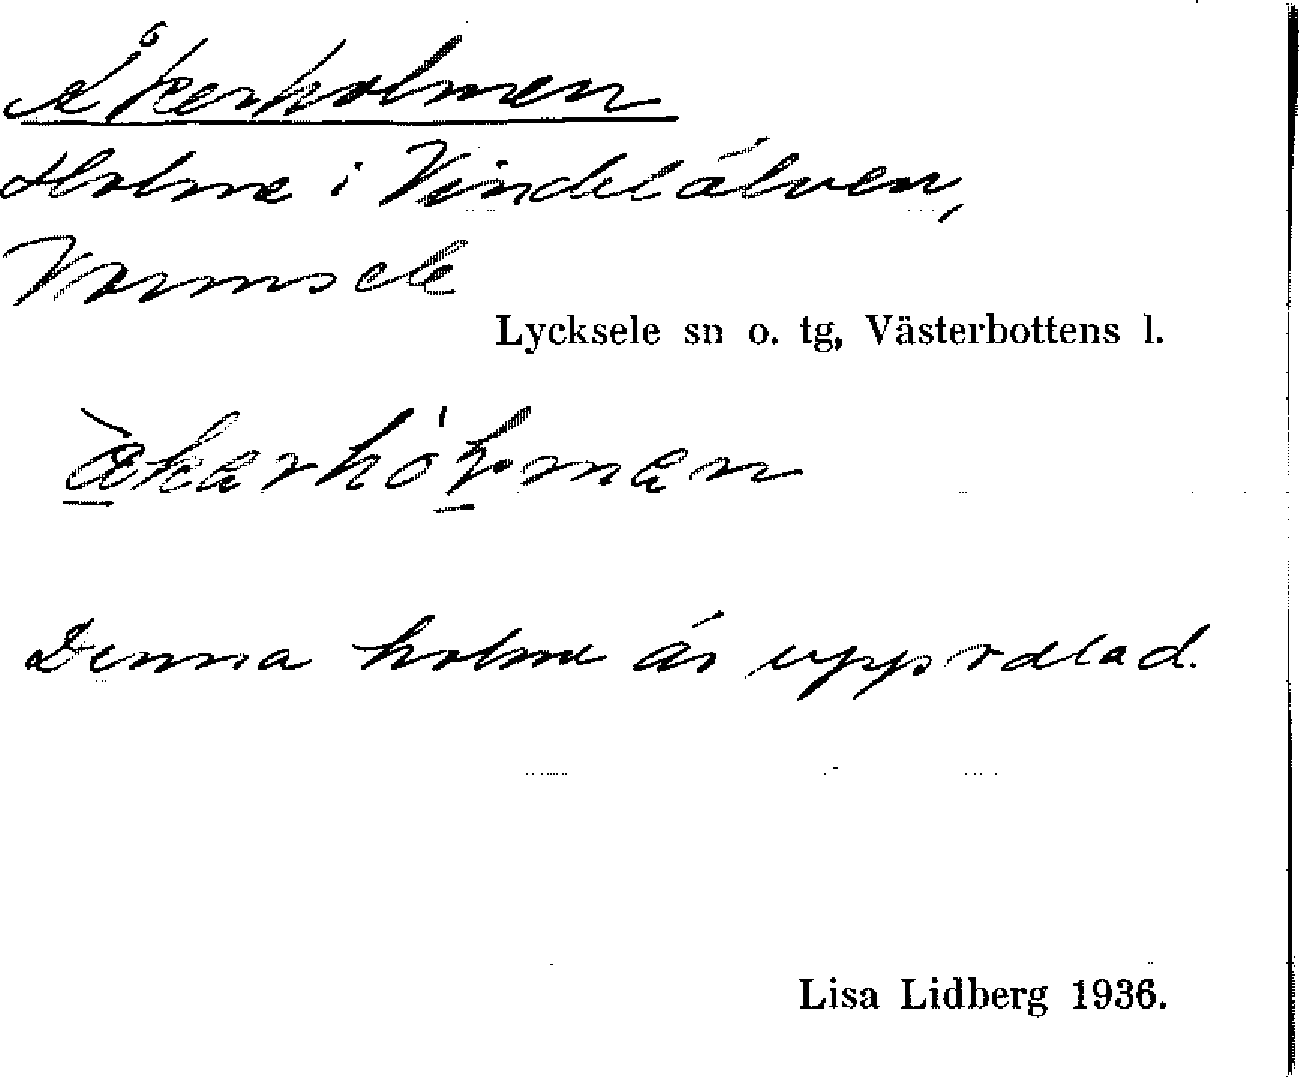 Åkerholmen
Holme i Vindelälven,
Vormsele
Lycksele sn o. tg, Västerbottens l.
Denna holme är uppodlad.
Lisa Lidberg 1936.